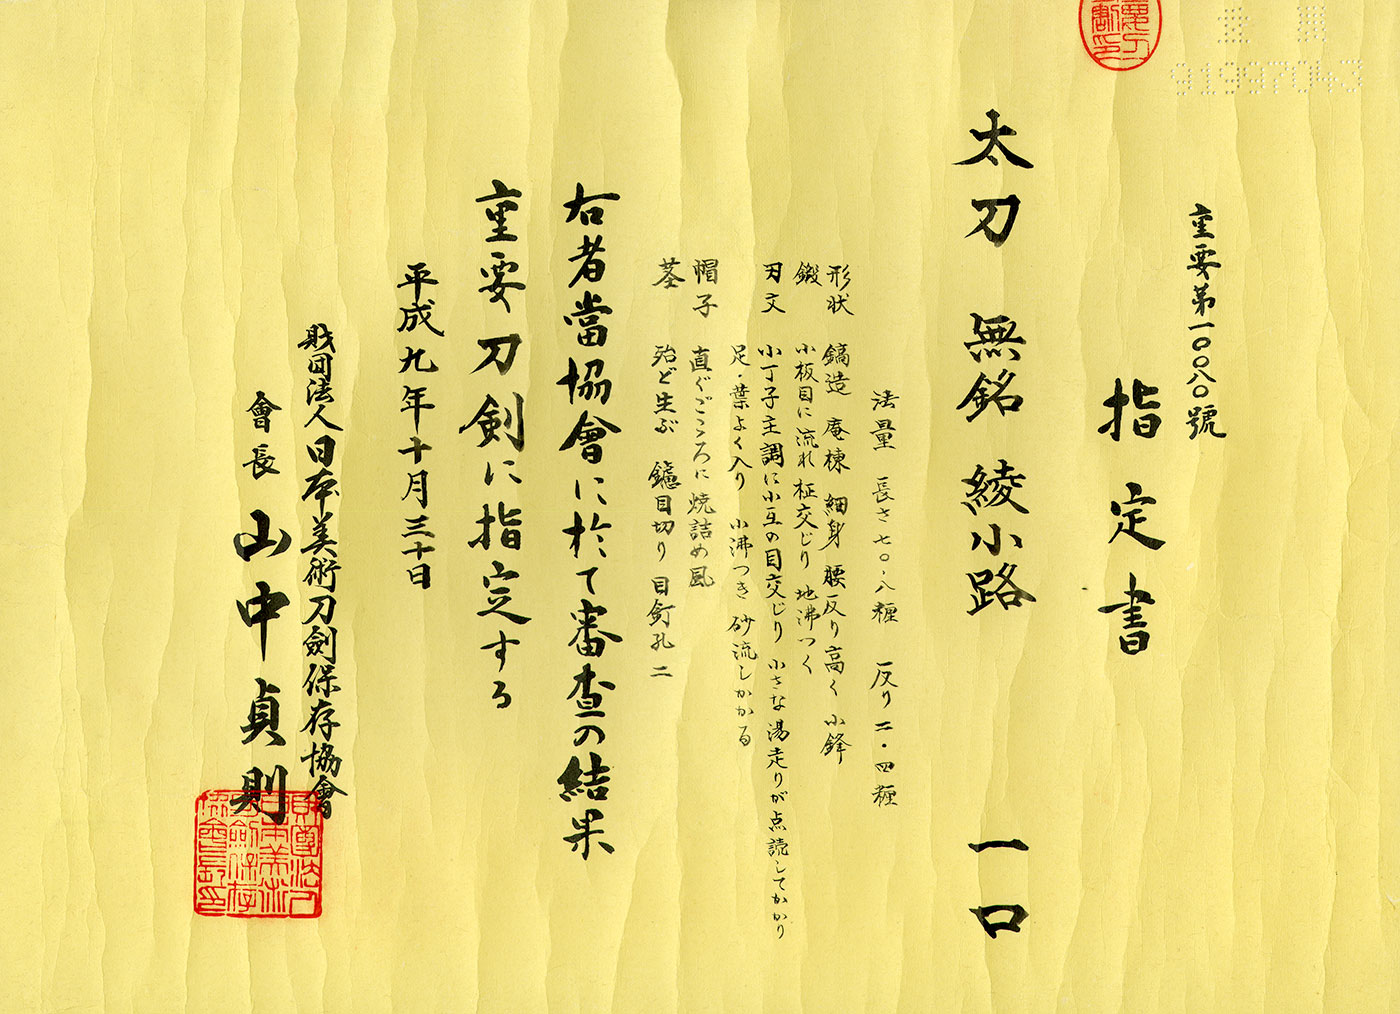 91997043
重要第一〇〇八〇號
指定書
太刀 無銘 綾小路 一口
法量 長さ七〇・八糎 反り二・四糎
形状 鎬造 庵棟 細身 腰反り高く 小鋒
鍛 小板目に流れ柾交じり 地沸つく
刃文 小丁子主調に小互の目交じり 小さな湯走りが点読してかかり
足・葉よく入り 小沸つき 砂流しかかる
帽子 直ぐごころに焼詰め風
茎 殆ど生ぶ 鑢目切り 目釘孔二
右者當協會に於て審査の結果
重要刀剣に指定する
平成九年十月三十日
財団法人日本美術刀剣保存協會
會長 山中貞則